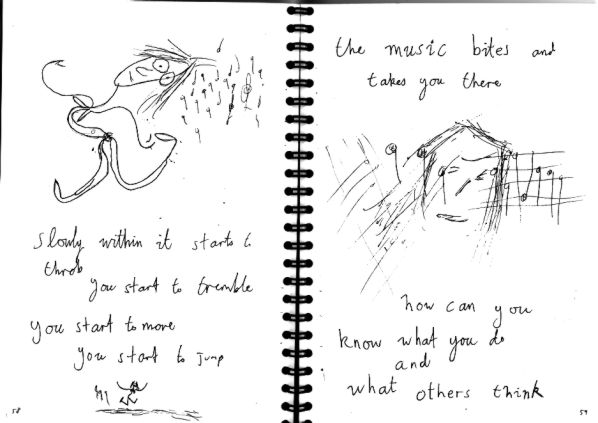 slowly within it starts to
throb
you start to tremble
you start to move
you start to jump
58
the music bites and
takes you there
how can you
know what you do
and
what others think
59